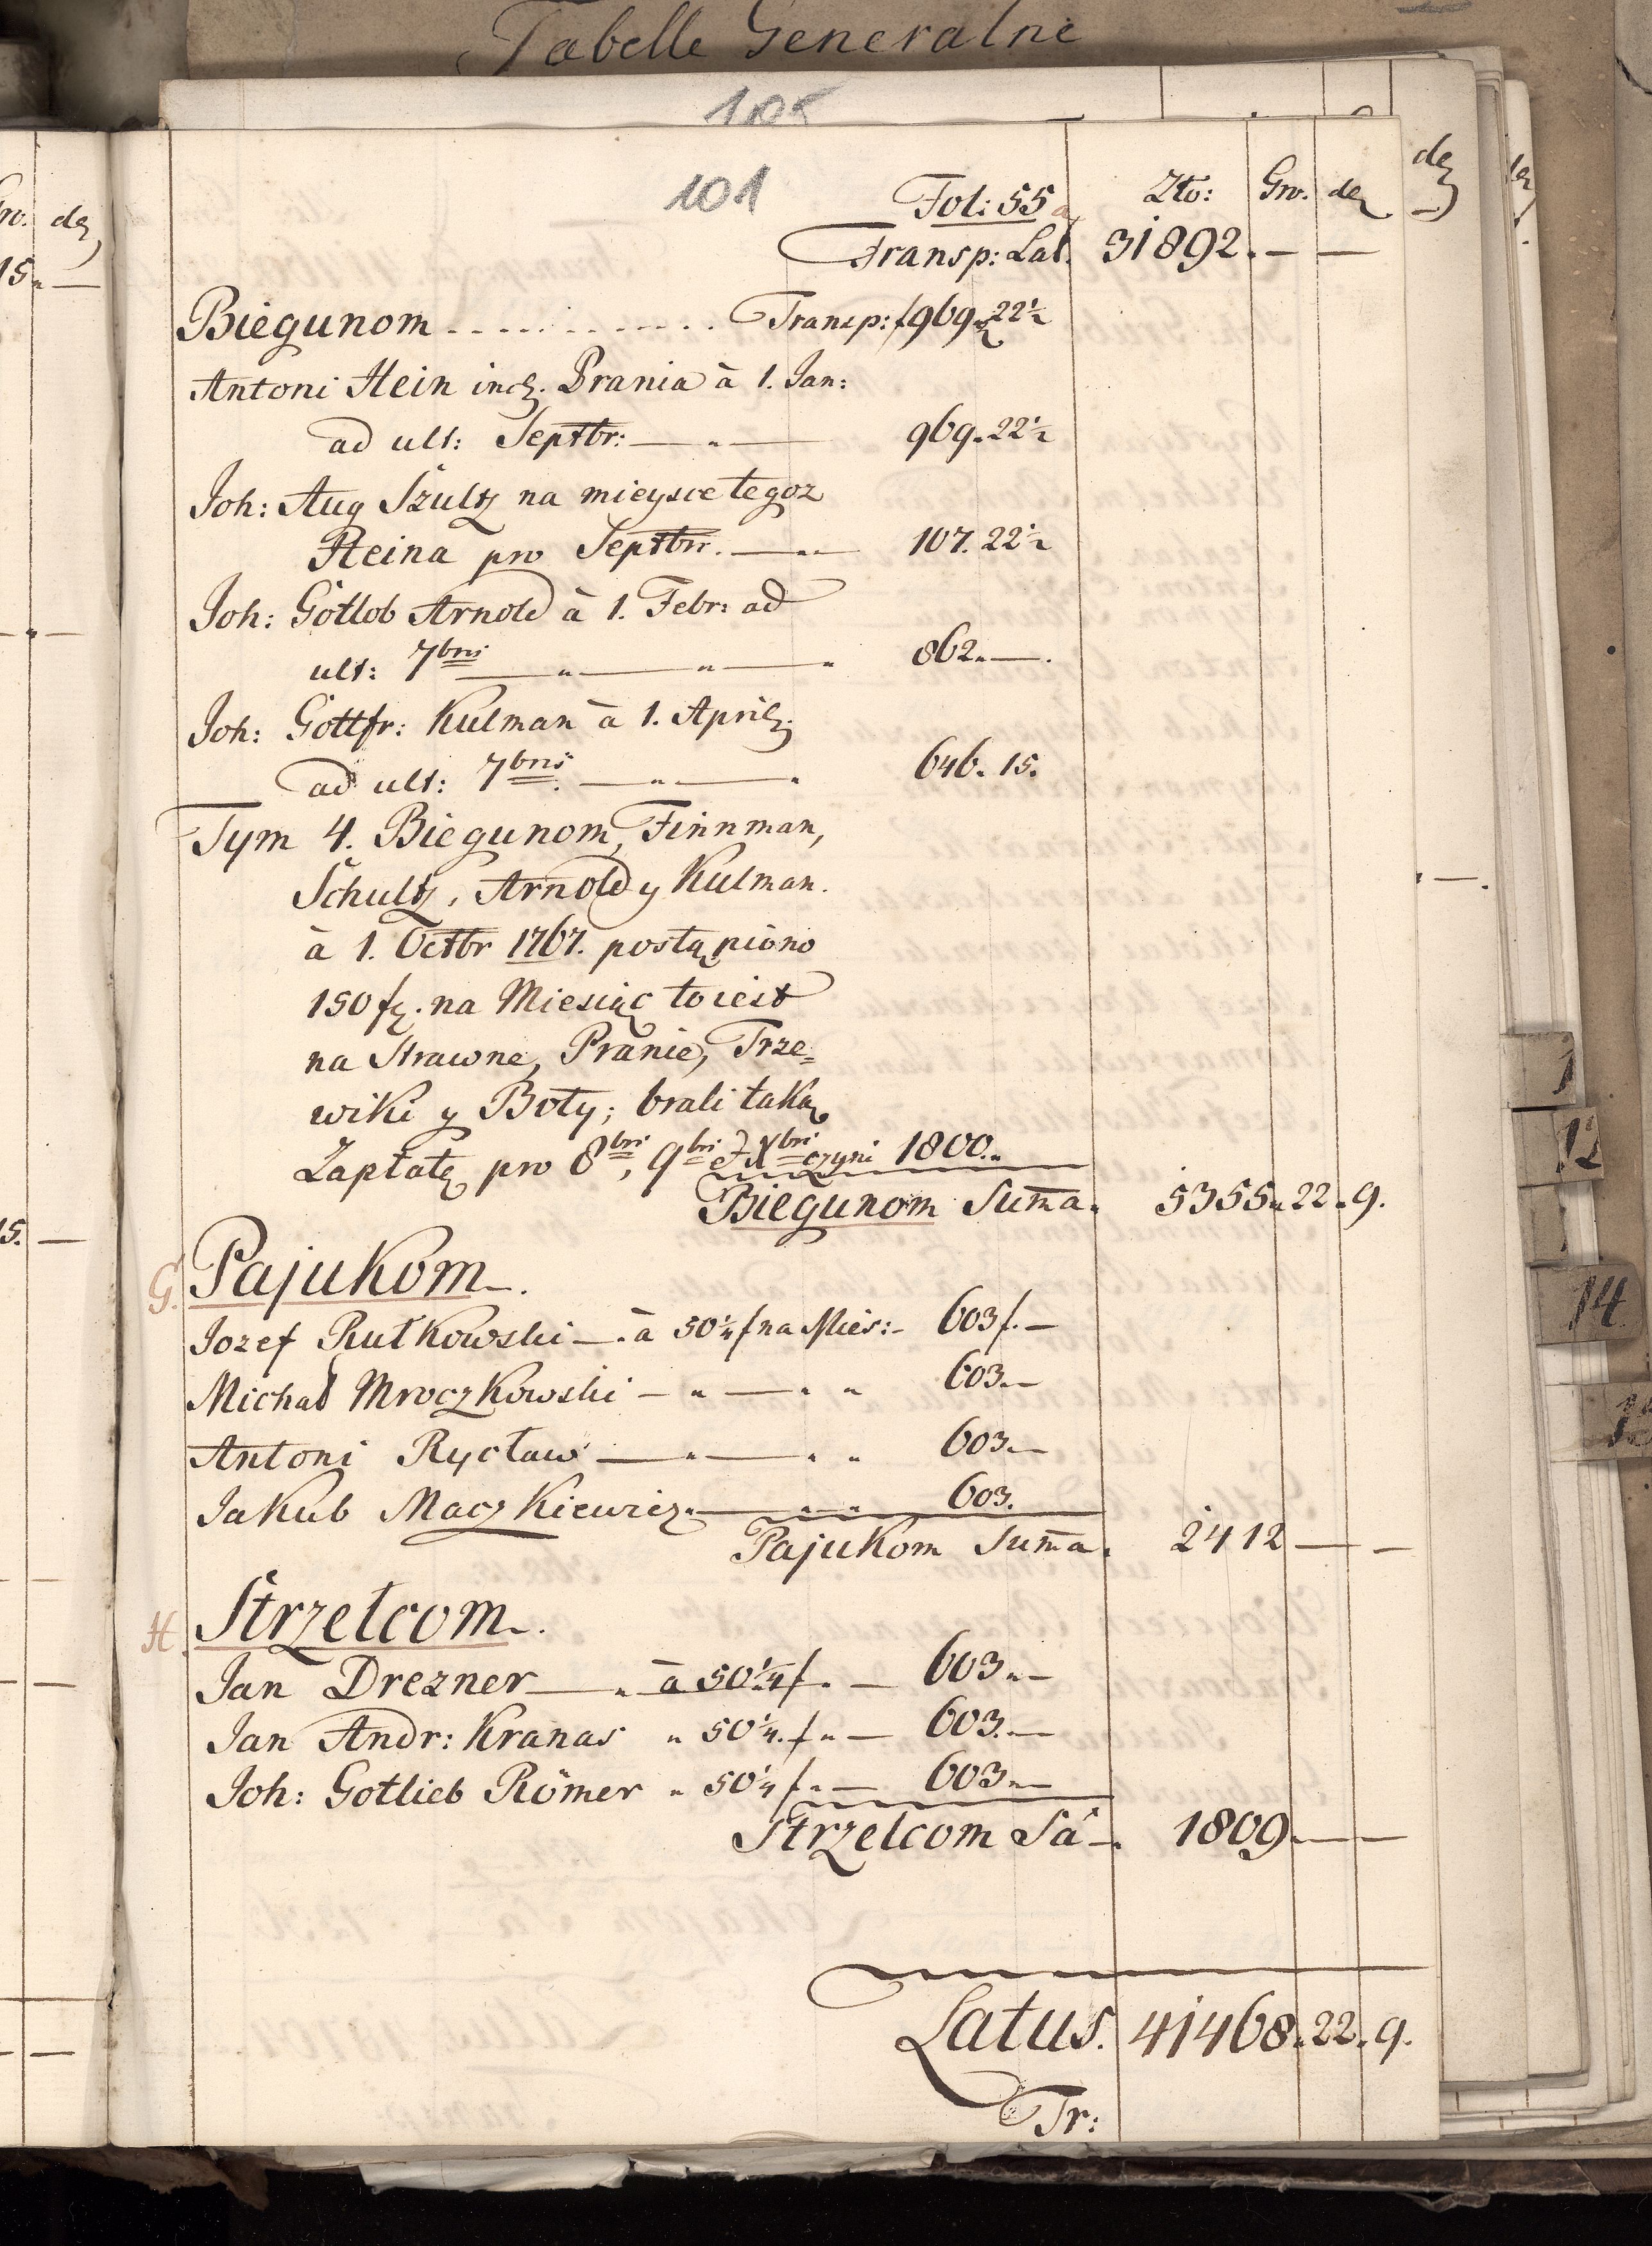 Tabelle Generalne
105
101
Fol: 55 a
Zło: Gro. de
Transp: Lat. 31892. — —
Biegunom ............ Transp: f 969. 22½
Antoni Hein incl. Prania à 1. Jan:
ad ult: Septbr: — " — 969. 22½
Joh: Aug Szultz na mieysce tegoz
Heina pro Septbr. — " — 107. 22½
Joh: Gotlob Arnold à 1. Febr: ad
ult: 7bris — " — " — " 862. —.
Joh: Gottfr: Kulman à 1. April.
ad ult: 7bris. — " — " 646. 15.
Tym 4. Biegunom, Finnman,
Schultz, Arnold y Kulman.
à 1. Octbr 1767. postąpiono
150 f. na Miesiąc to iest
na Strawne, Pranie, Trze=
wiki y Boty; brali taką
Zapłatę pro 8bri, 9bri et Xbri czyni 1800. "
Biegunom Suma. 5355. 22. 9.
G. Pajukom.
Jozef Rutkowski —. à 50¼ f na Mies: - 603 f. —
Michał Mroczkowski — " — " " 603. —
Antoni Rycław — " — " " 603. —
Jakub Maczkiewicz. — " " 603.
Pajukom Suma. 2412 — —
H. Strzelcom.
Jan Drezner — " à 50¼ f. — 603. —
Jan Andr: Kranas " 50¼. f " — 603. —
Joh: Gotlieb Römer " 50¼ f " — 603. —
Strzelcom Sa —. 1809. — —
Latus. 41468. 22. 9.
Tr:
1
12
14